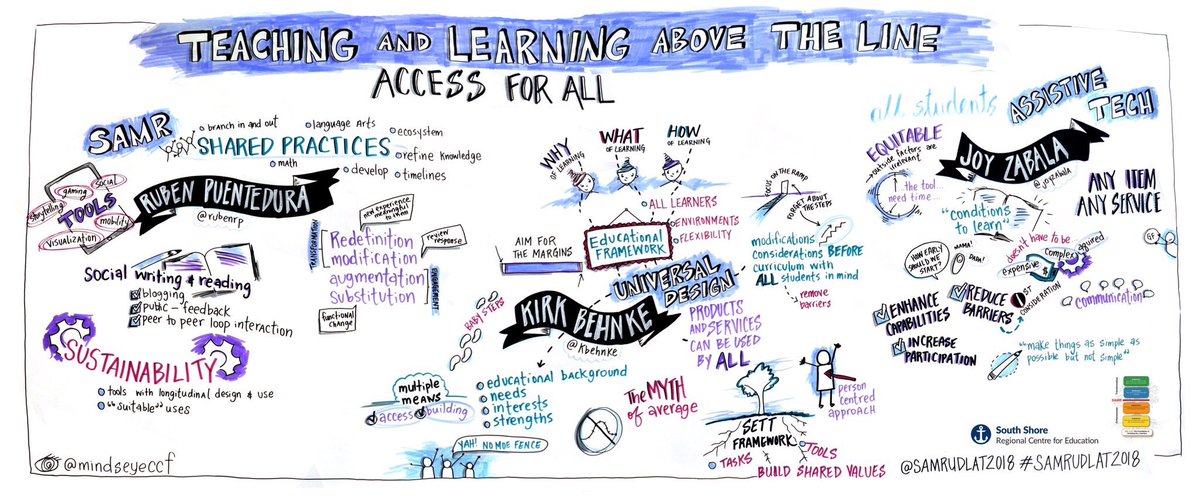 TEACHING AND LEARNING ABOVE THE LINE
ACCESS FOR ALL
SAMR
branch in and out
language Arts
ecosystem
SHARED PRACTICES
refine knowledge
math
develop
timelines
RUBEN PUENTEDURA
@rubenrp
TOOLS
gaming
social
storytelling
mobility
visualization
Social writing & reading
blogging
public - feedback
peer to peer loop interaction
SUSTAINABILITY
tools with longitudinal design & use
"suitable" uses
new experience
meaningful
to them
TRANSFORMATION
Redefinition
modification
augmentation
Substitution
review
response
ENHANCEMENT
functional
change
WHY
OF LEARNING
WHAT
OF LEARNING
HOW
OF LEARNING
ALL LEARNERS
ENVIRONMENTS
FLEXIBILITY
Educational
FRAMEWORK
AIM FOR
THE MARGINS
FOCUS ON THE RAMP
FORGET ABOUT
THE STEPS
modifications
considerations BEFORE
curriculum with
ALL students in mind
remove
barriers
UNIVERSAL
DESIGN
KIRK BEHNKE
@Kbehnke
PRODUCTS
AND SERVICES
CAN BE USED
BY ALL
BABY STEPS
multiple
means
access
building
educational background
needs
interests
strengths
YAH! NO MOE FENCE
The MYTH
of average
SETT
FRAMEWORK
TASKS
TOOLS
BUILD SHARED VALUES
person
centred
approach
all students
ASSISTIVE
TECH
EQUITABLE
outside factors are
irrelevant
JOY ZABALA
@joyzabala
...the tool...
need time...
"conditions
to learn"
ANY ITEM
ANY SERVICE
GF
HOW EARLY
SHOULD WE
START?
MAMA!
DADA!
doesn't have to be
complex
aquired
expensive
$
1ST
CONSIDERATION
communication
ENHANCE
CAPABILITIES
REDUCE
BARRIERS
INCREASE
PARTICIPATION
"make things as simple as
possible but not simple"
South Shore
Regional Centre for Education
@mindseyeccf
@SAMRUDLAT2018 #SAMRUDLAT2018